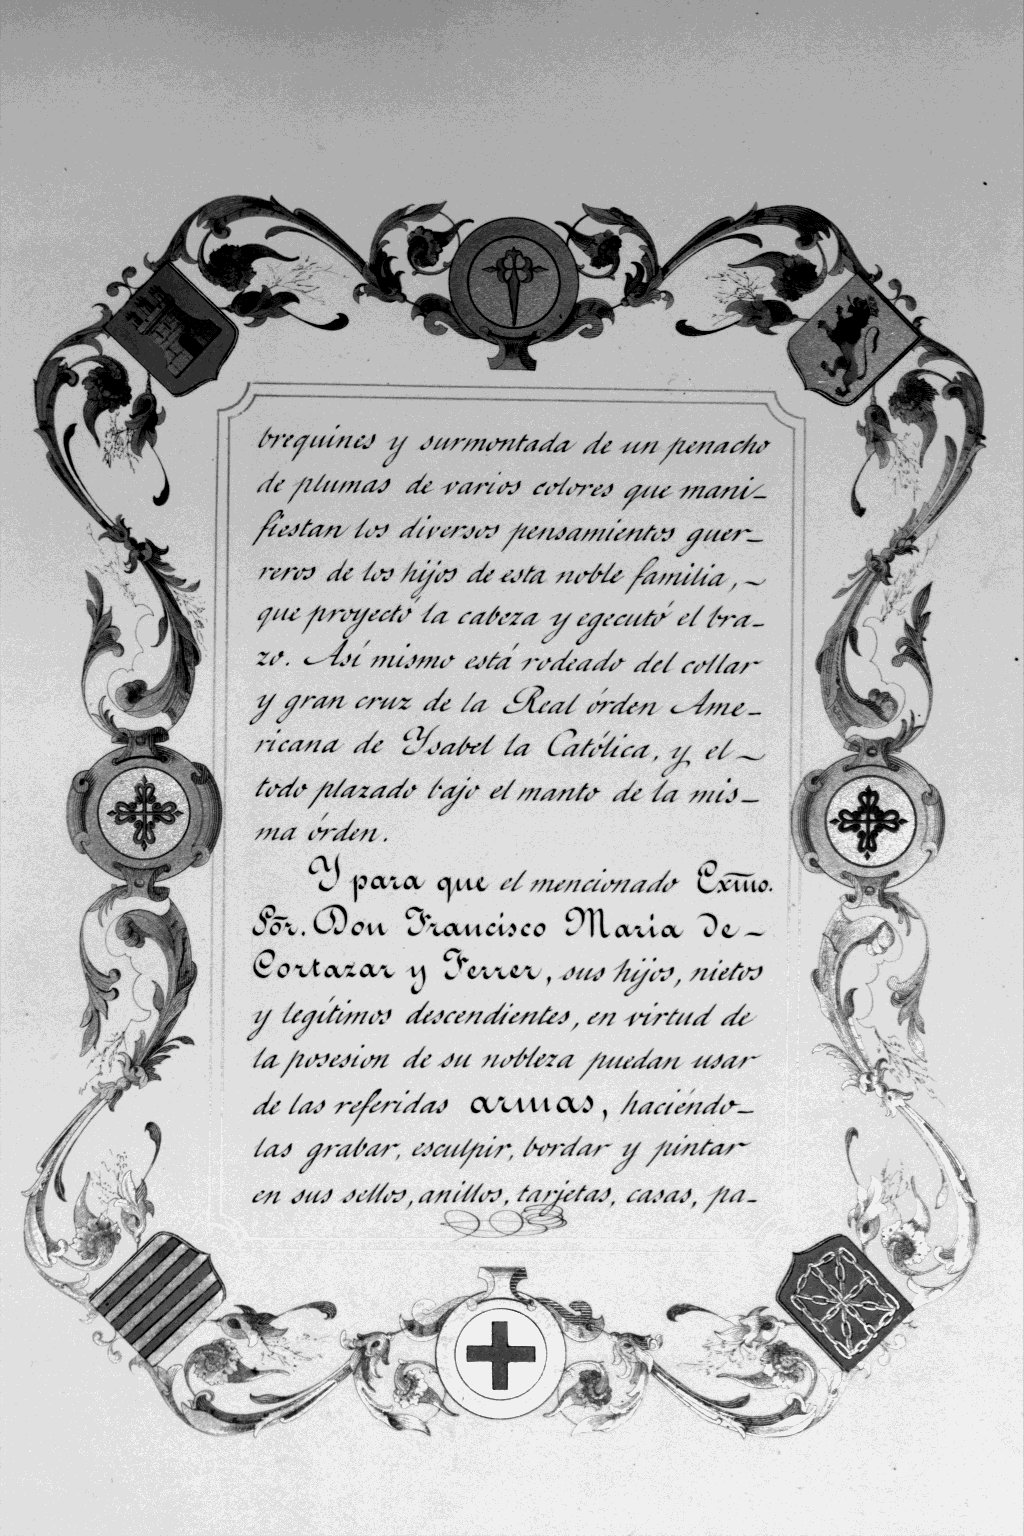 brequines y surmontada de un penacho
de plumas de varios colores que mani-
fiestan los diversos pensamientos guer-
reros de los hijos de esta noble familia, -
que proyectó la cabeza y egecutó el bra-
zo. Así mismo está rodeado del collar
y gran cruz de la Real órden Ame-
ricana de Ysabel la Católica, y el -
todo plazado bajo el manto de la mis-
ma órden.
Y para que el mencionado Exmo.
Sōr. Don Francisco Maria de -
Cortazar y Ferrer, sus hijos, nietos
y legítimos descendientes, en virtud de
la posesion de su nobleza puedan usar
de las referidas armas, haciéndo-
las grabar, esculpir, bordar y pintar
en sus sellos, anillos, tarjetas, casas, pa-